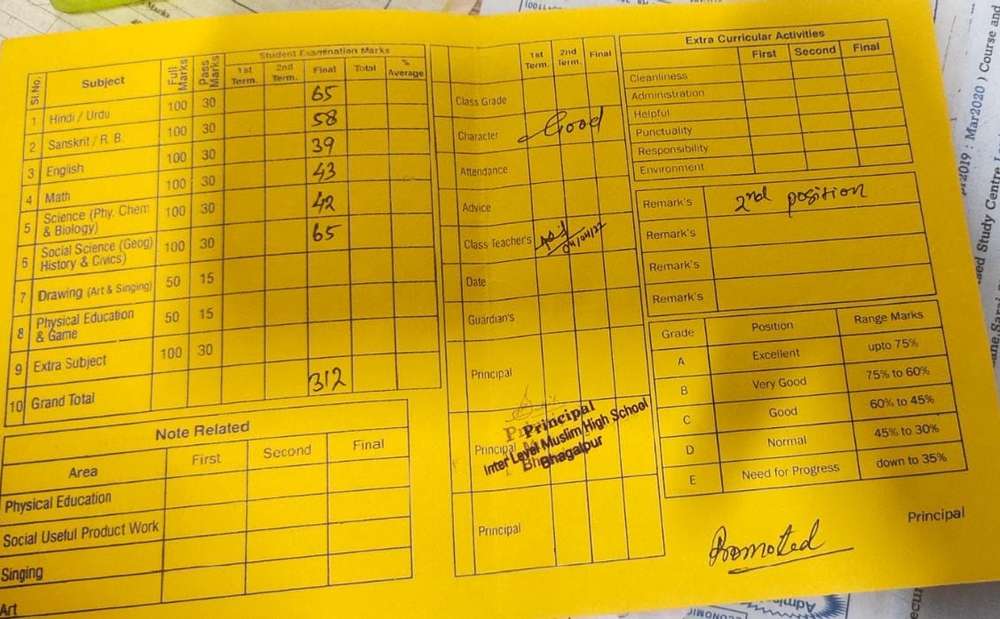 Student Examination Marks
Sl.No. Subject Full Marks Pass Marks 1st Term. 2nd Term. Final Total % Average
1 Hindi / Urdu 100 30 65
2 Sanskrit / R. B. 100 30 58
3 English 100 30 39
4 Math 100 30 43
5 Science (Phy. Chem & Biology) 100 30 42
6 Social Science (Geog) History & Civics) 100 30 65
7 Drawing (Art & Singing) 50 15
8 Physical Education & Game 50 15
9 Extra Subject 100 30
10 Grand Total 312
Note Related
Area First Second Final
Physical Education
Social Useful Product Work
Singing
Art
1st Term. 2nd Term. Final
Class Grade
Character Good
Attendance
Advice
Class Teacher's
Date
Guardian's
Principal
Principal
Principal
Inter Level Muslim High School
Bhagalpur
Principal
Extra Curricular Activities
First Second Final
Cleanliness
Administration
Helpful
Punctuality
Responsibility
Environment
Remark's 2nd position
Remark's
Remark's
Remark's
Grade Position Range Marks
A Excellent upto 75%
B Very Good 75% to 60%
C Good 60% to 45%
D Normal 45% to 30%
E Need for Progress down to 35%
Promoted
Principal
2019 : Mar2020 ) Course and
Study Centre